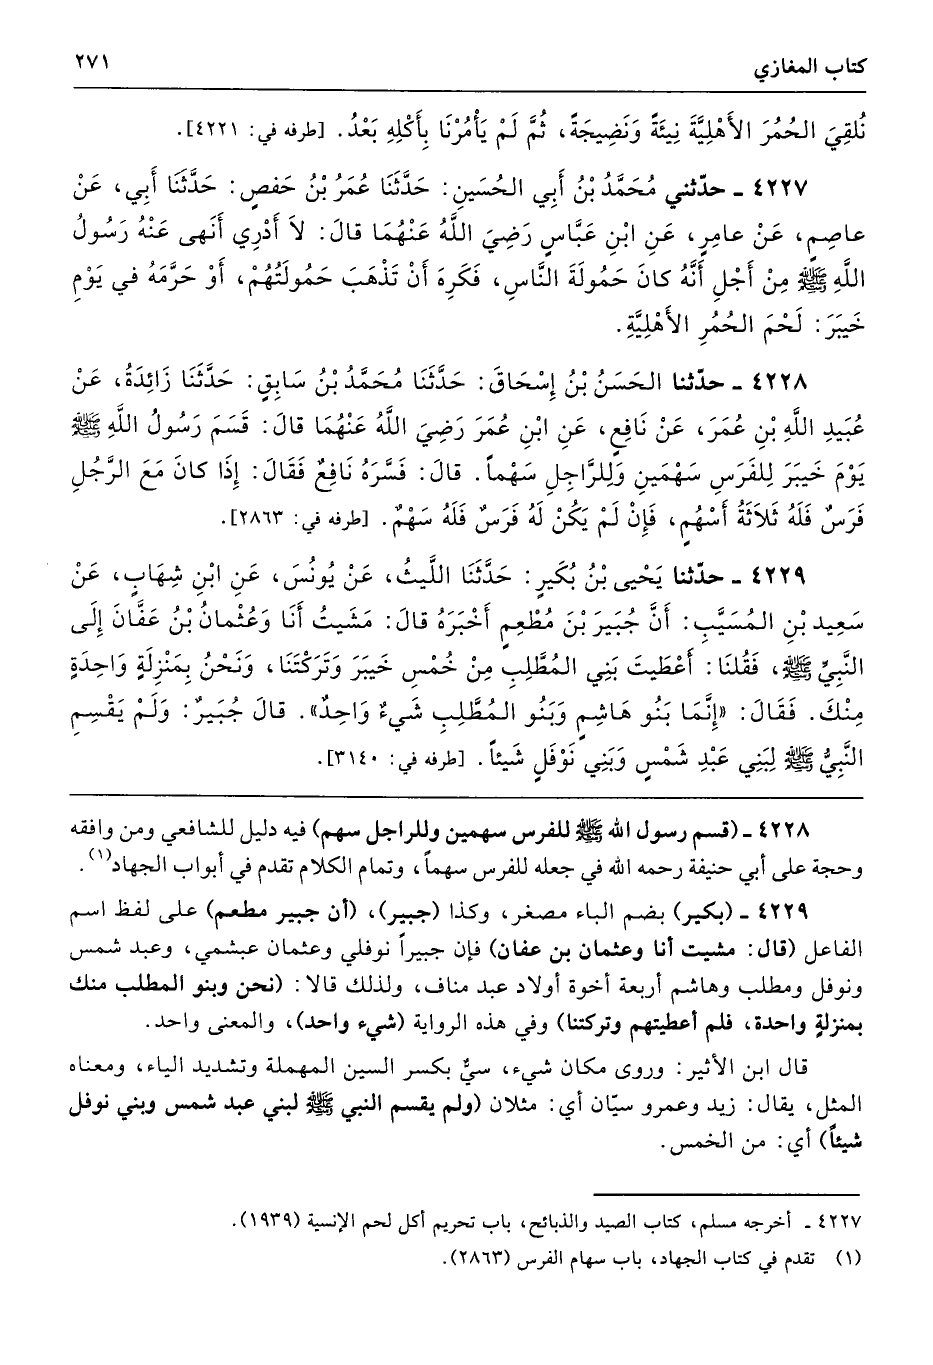 كتاب المغازي
٢٧١
نُلقِيَ الحُمُرَ الأَهْلِيَّةَ نِيئَةً وَنَضِيجَةً، ثُمَّ لَمْ يَأْمُرْنَا بِأَكْلِهِ بَعْدُ. [طرفه في: ٤٢٢١].
٤٢٢٧ ـ حدّثني مُحَمَّدُ بْنُ أَبِي الحُسَينِ: حَدَّثَنَا عُمَرُ بْنُ حَفصٍ: حَدَّثَنَا أَبِي، عَنْ
عاصِمٍ، عَنْ عامِرٍ، عَنِ ابْنِ عَبَّاسٍ رَضِيَ اللَّهُ عَنْهُمَا قالَ: لاَ أَدْرِي أَنَهى عَنْهُ رَسُولُ
اللَّهِ ﷺ مِنْ أَجْلِ أَنَّهُ كانَ حَمُولَةَ النَّاسِ، فَكَرِهَ أَنْ تَذْهَبَ حَمُولَتُهُمْ، أَوْ حَرَّمَهُ في يَوْمِ
خَيبَرَ: لَحْمَ الحُمُرِ الأَهْلِيَّةِ.
٤٢٢٨ ـ حدّثنا الحَسَنُ بْنُ إِسْحَاقَ: حَدَّثَنَا مُحَمَّدُ بْنُ سَابِقٍ: حَدَّثَنَا زَائِدَةُ، عَنْ
عُبَيدِ اللَّهِ بْنِ عُمَرَ، عَنْ نَافِعٍ، عَنِ ابْنِ عُمَرَ رَضِيَ اللَّهُ عَنْهُمَا قالَ: قَسَمَ رَسُولُ اللَّهِ ﷺ
يَوْمَ خَيبَرَ لِلفَرَسِ سَهْمَينِ وَلِلرَّاجِلِ سَهْماً. قالَ: فَسَّرَهُ نَافِعٌ فَقَالَ: إِذَا كانَ مَعَ الرَّجُلِ
فَرَسٌ فَلَهُ ثَلاَثَةُ أَسْهُمٍ، فَإِنْ لَمْ يَكُنْ لَهُ فَرَسٌ فَلَهُ سَهْمٌ. [طرفه في: ٢٨٦٣].
٤٢٢٩ ـ حدّثنا يَحْيى بْنُ بُكَيرٍ: حَدَّثَنَا اللَّيثُ، عَنْ يُونُسَ، عَنِ ابْنِ شِهَابٍ، عَنْ
سَعِيدِ بْنِ المُسَيَّبِ: أَنَّ جُبَيرَ بْنَ مُطْعِمٍ أَخْبَرَهُ قالَ: مَشَيتُ أَنَا وَعُثْمانُ بْنُ عَفَّانَ إِلَى
النَّبِيِّ ﷺ، فَقُلنَا: أَعْطَيتَ بَنِي المُطَّلِبِ مِنْ خُمْسِ خَيبَرَ وَتَرَكْتَنَا، وَنَحْنُ بِمَنْزِلَةٍ وَاحِدَةٍ
مِنْكَ. فَقَالَ: «إِنَّمَا بَنُو هَاشِمٍ وَبَنُو المُطَّلِبِ شَيءٌ وَاحِدٌ». قالَ جُبَيرٌ: وَلَمْ يَقْسِمِ
النَّبِيُّ ﷺ لِبَنِي عَبْدِ شَمْسٍ وَبَنِي نَوْفَلٍ شَيئاً. [طرفه في: ٣١٤٠].
٤٢٢٨ ـ (قسم رسول الله ﷺ للفرس سهمين وللراجل سهم) فيه دليل للشافعي ومن وافقه
وحجة على أبي حنيفة رحمه الله في جعله للفرس سهماً، وتمام الكلام تقدم في أبواب الجهاد(١).
٤٢٢٩ ـ (بكير) بضم الباء مصغر، وكذا (جبير)، (أن جبير مطعم) على لفظ اسم
الفاعل (قال: مشيت أنا وعثمان بن عفان) فإن جبيراً نوفلي وعثمان عبشمي، وعبد شمس
ونوفل ومطلب وهاشم أربعة أخوة أولاد عبد مناف، ولذلك قالا: (نحن وبنو المطلب منك
بمنزلةٍ واحدة، فلم أعطيتهم وتركتنا) وفي هذه الرواية (شيء واحد)، والمعنى واحد.
قال ابن الأثير: وروى مكان شيء، سيٌّ بكسر السين المهملة وتشديد الياء، ومعناه
المثل، يقال: زيد وعمرو سيّان أي: مثلان (ولم يقسم النبي ﷺ لبني عبد شمس وبني نوفل
شيئاً) أي: من الخمس.
٤٢٢٧ ـ أخرجه مسلم، كتاب الصيد والذبائح، باب تحريم أكل لحم الإنسية (١٩٣٩).
(١) تقدم في كتاب الجهاد، باب سهام الفرس (٢٨٦٣).